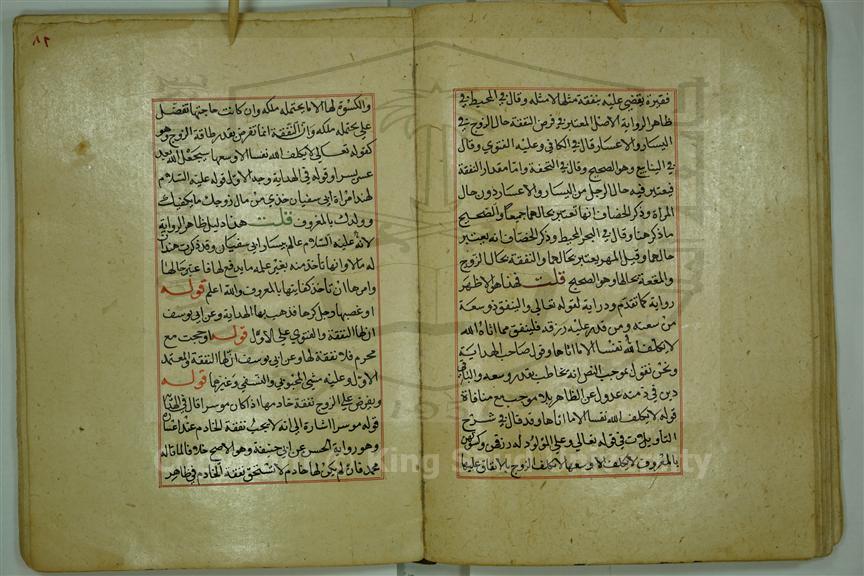 فقيرة يقضى عليه بنفقة مثلها لا مثله وقال في المحيط في
ظاهر الرواية الاصل المعتبر في فرض النفقة حال الزوج في
اليسار والاعسار قال في الكافي وعليه الفتوى وقال
في الينابيع وهو الصحيح وقال في التحفة واما مقدار النفقة
فيعتبر فيه حال الرجل من اليسار والاعسار دون حال
المرأة وذكر الخصاف انها تعتبر بحالهما جميعا والصحيح
ما ذكرهنا وقال في البحر المحيط وذكر الخصاف انه يعتبر
حالهما وقيل المهر يعتبر بحالها والنفقة بحال الزوج
والمتعة بحالها وهو الصحيح قلت فما هو الاظهر
رواية كما تقدم ودراية لقوله تعالى والينفق ذو سعة
من سعته ومن قدر عليه رزقه فلينفق مما اتاه الله
لا يكلف الله نفسا الا ما اتاها وقول صاحب الهداية
ونحن نقول بموجب النص انه يخاطب بقدر وسعه والباقي
دين في ذمته عدول عن الظاهر بلا موجب مع منافاة
قوله لا يكلف الله نفسا الا ما اتاها وقد قال في شرح
التاويلات في قوله تعالى وعلى المولود له رزقهن وكسوتهن
بالمعروف لا يكلف الا وسعها لا يكلف الزوج بالانفاق عليها
٨٢
والكسوة لها الا ما يحتمله ملكه وان كانت حاجتها تفضل
على يحتمله ملكه وان النفقة انما تفرض بقدر طاقة الزوج وهو
كقوله تعالى لا يكلف الله نفسا الا وسعها سيجعل الله بعد
عسر يسرا وقوله في الهداية وجه الاول قوله عليه السلام
لهند امراة ابى سفيان خذي من مال زوجك ما يكفيك
وولدك بالمعروف قلت هذا دليل ظاهر الرواية
لانه عليه السلام عالم بيسار ابى سفيان وقد ذكرت هند ان
له مالا وانها تأخذ منه بغير علمه ما يدفع لها فاعتبر حالها
وامرها ان تأخذ كفايتها بالمعروف والله اعلم قوله
او غصبها رجل كرها فذهب بها الهداية وعن ابى يوسف
ان لها النفقة والفتوى على الاول قوله او حجت مع
محرم فلا نفقة لها وعن ابى يوسف ان لها النفقة والمعتمد
الاول وعليه مشى المحبوبي والنسفي وغيرهما قوله
ويفرض على الزوج نفقة خادمها اذا كان موسرا قال في الهداية
قوله موسرا اشارة الى انه لا يجب نفقة الخادم عند اعساره
وهو رواية الحسن عن ابى حنيفة وهو الاصح خلافا لما قاله
محمد فان لم يكن لها خادم لا تستحق نفقة الخادم في ظاهر